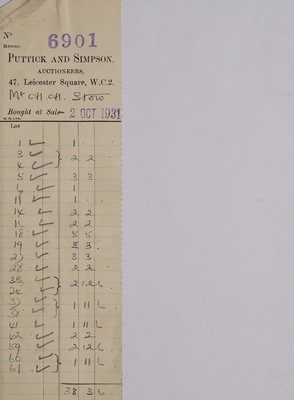 No 6901
Messrs.
PUTTICK AND SIMPSON,
AUCTIONEERS,
47, Leicester Square, W.C.2.
Bought at Sale 2 OCT 1931
LOT
1 1
3
4 2 2
5 3 3
6 1
11 1
14 2 2
2 2
18 5 5
19 3 3
3 3
2 2
2 12 6
1 11 6
41 1 11 6
42 2 2
59 2 12 6
60
61 1 11 6
38 3 6